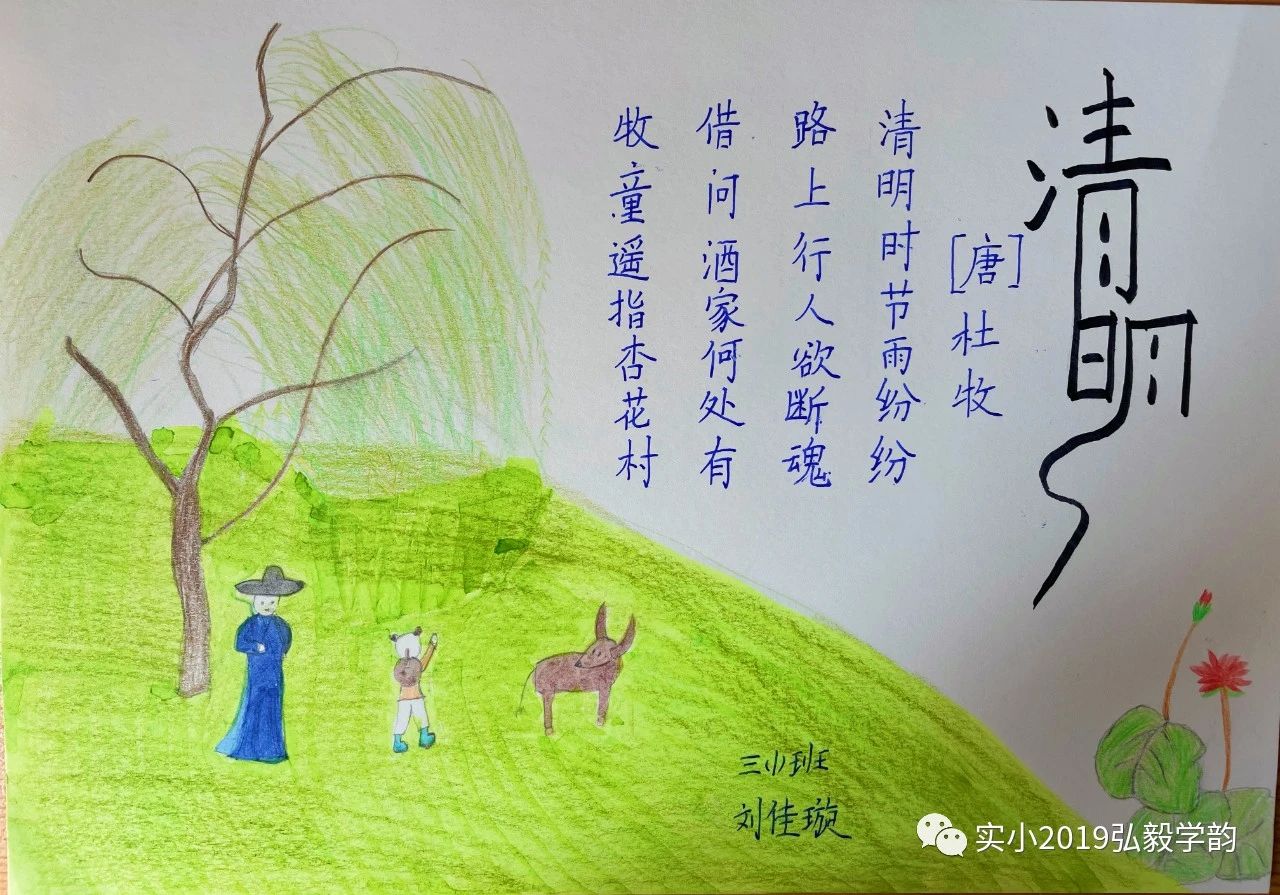 清明
[唐]杜牧
清明时节雨纷纷
路上行人欲断魂
借问酒家何处有
牧童遥指杏花村
三(1)班
刘佳璇
实小2019弘毅学韵